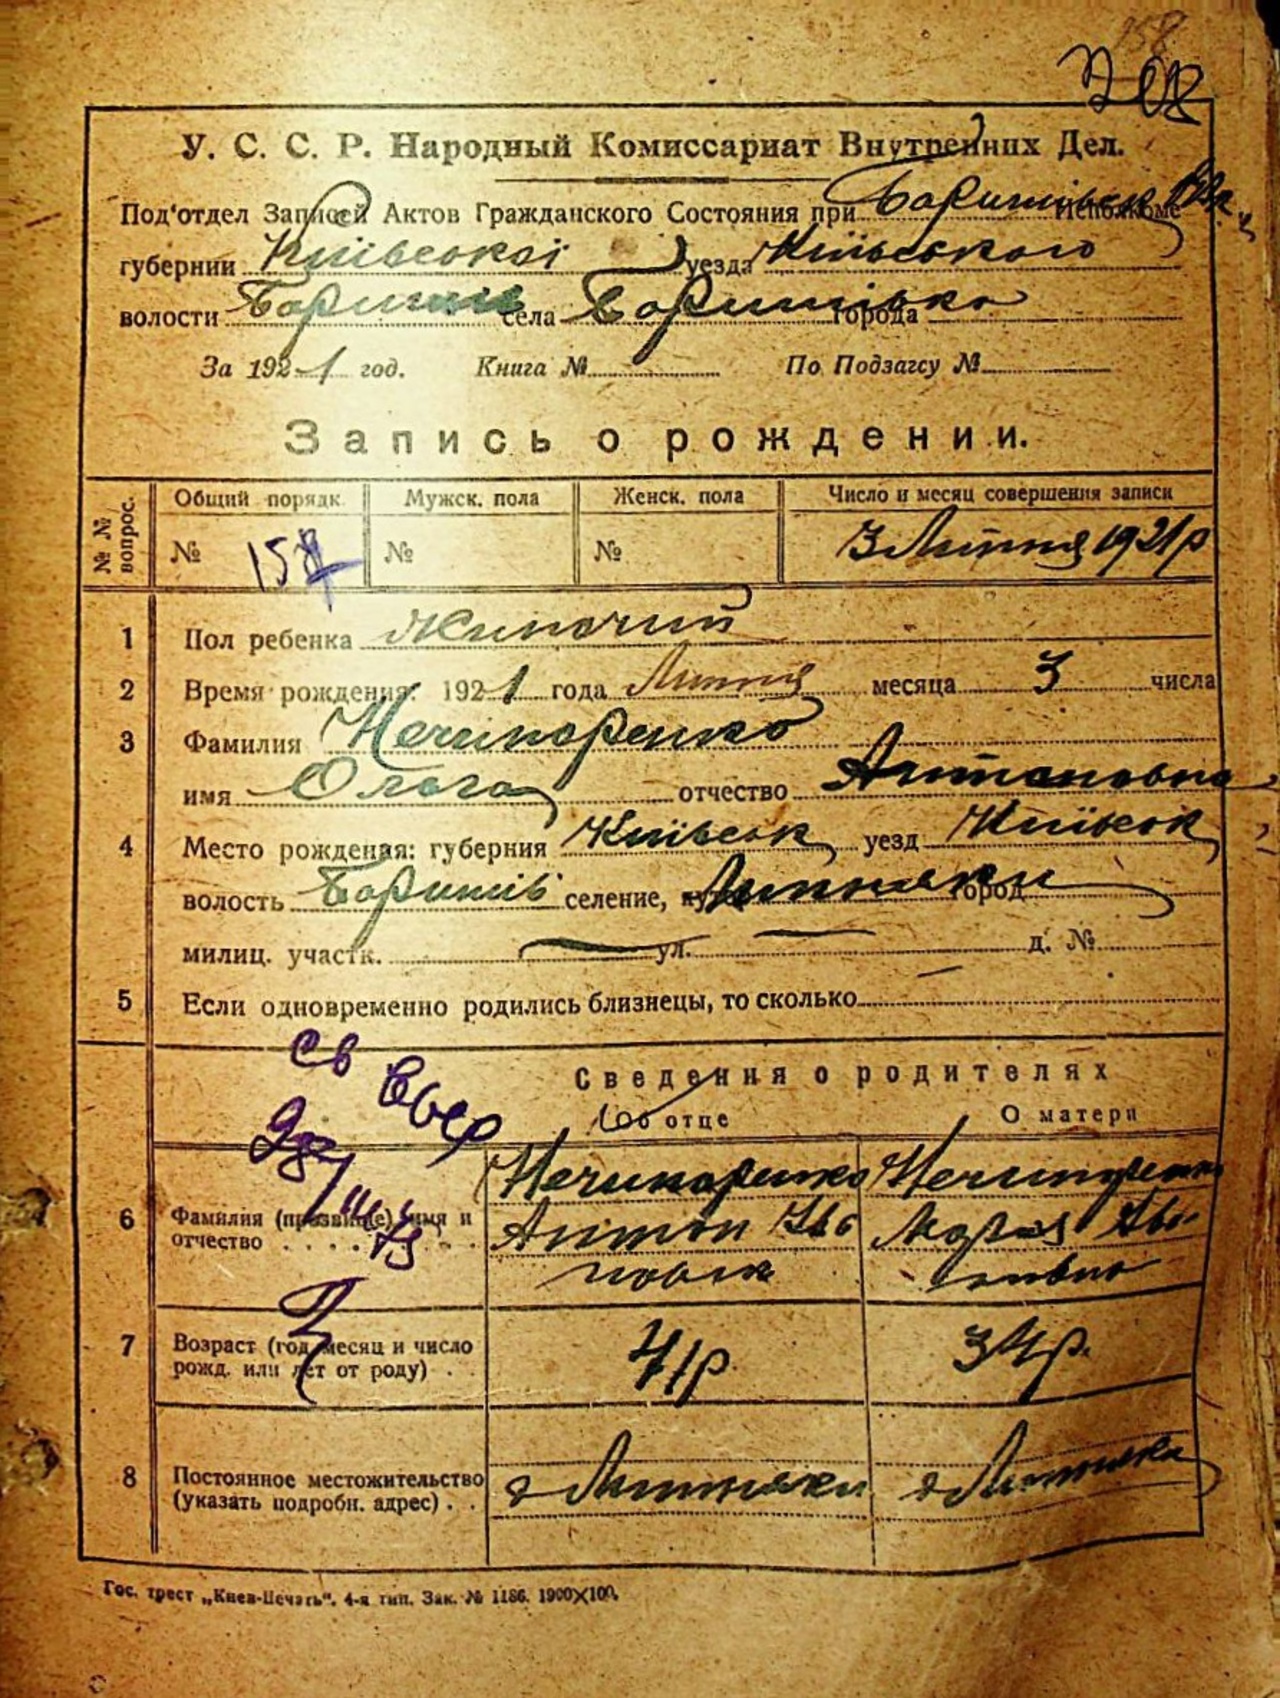 У. С. С. Р. Народный Комиссариат Внутренних Дел.
Под'отдел Записей Актов Гражданского Состояния при Баришівськ Исполкоме
губернии Київської уезда Київського
волости Баришів села Баришівка города
За 1921 год. Книга № По Подзагсу №
Запись о рождении.
№ № вопрос. Общий порядк. Мужск. пола Женск. пола Число и месяц совершения записи
№ 157 № № 3 Липня 1921 р
1 Пол ребенка Жиночий
2 Время рождения: 1921 года Липня месяца 3 числа
3 Фамилия Нечипоренко
имя Ольга отчество Антоновна
4 Место рождения: губерния Київськ уезд Київськ
волость Баришів селение, Липняки город
милиц. участк. ул. д. №
5 Если одновременно родились близнецы, то сколько
Сведения о родителях
Об отце О матери
6 Фамилия (прозвище) имя и отчество Нечипоренко Антон Нечипоренко
7 Возраст (год месяц и число рожд. или лет от роду) 41 р. 34 р.
8 Постоянное местожительство (указать подробн. адрес) Липняки Липняки
Гос. трест „Киев-Печать“. 4-я тип. Зак. № 1186. 1900×100.